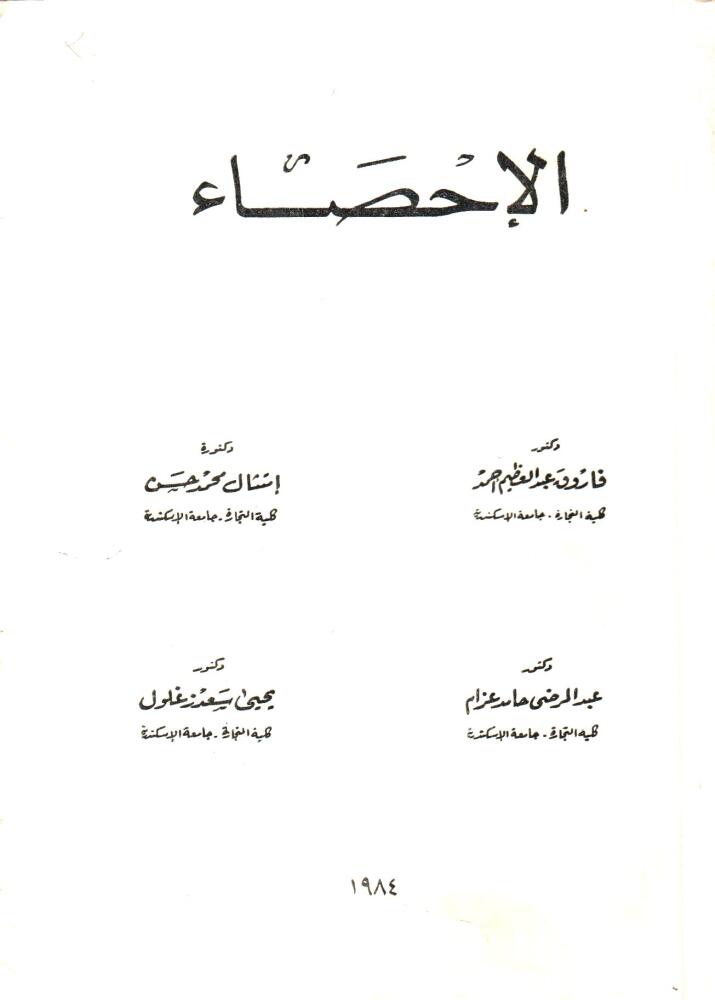 الإحصاء
دكتور
فاروق عبد العظيم احمد
كلية التجارة - جامعة الإسكندرية
دكتورة
إمتثال محمد حسن
كلية التجارة - جامعة الإسكندرية
دكتور
عبد المرضى حامد عزام
كلية التجارة - جامعة الإسكندرية
دكتور
يحيى سعد زغلول
كلية التجارة - جامعة الإسكندرية
١٩٨٤